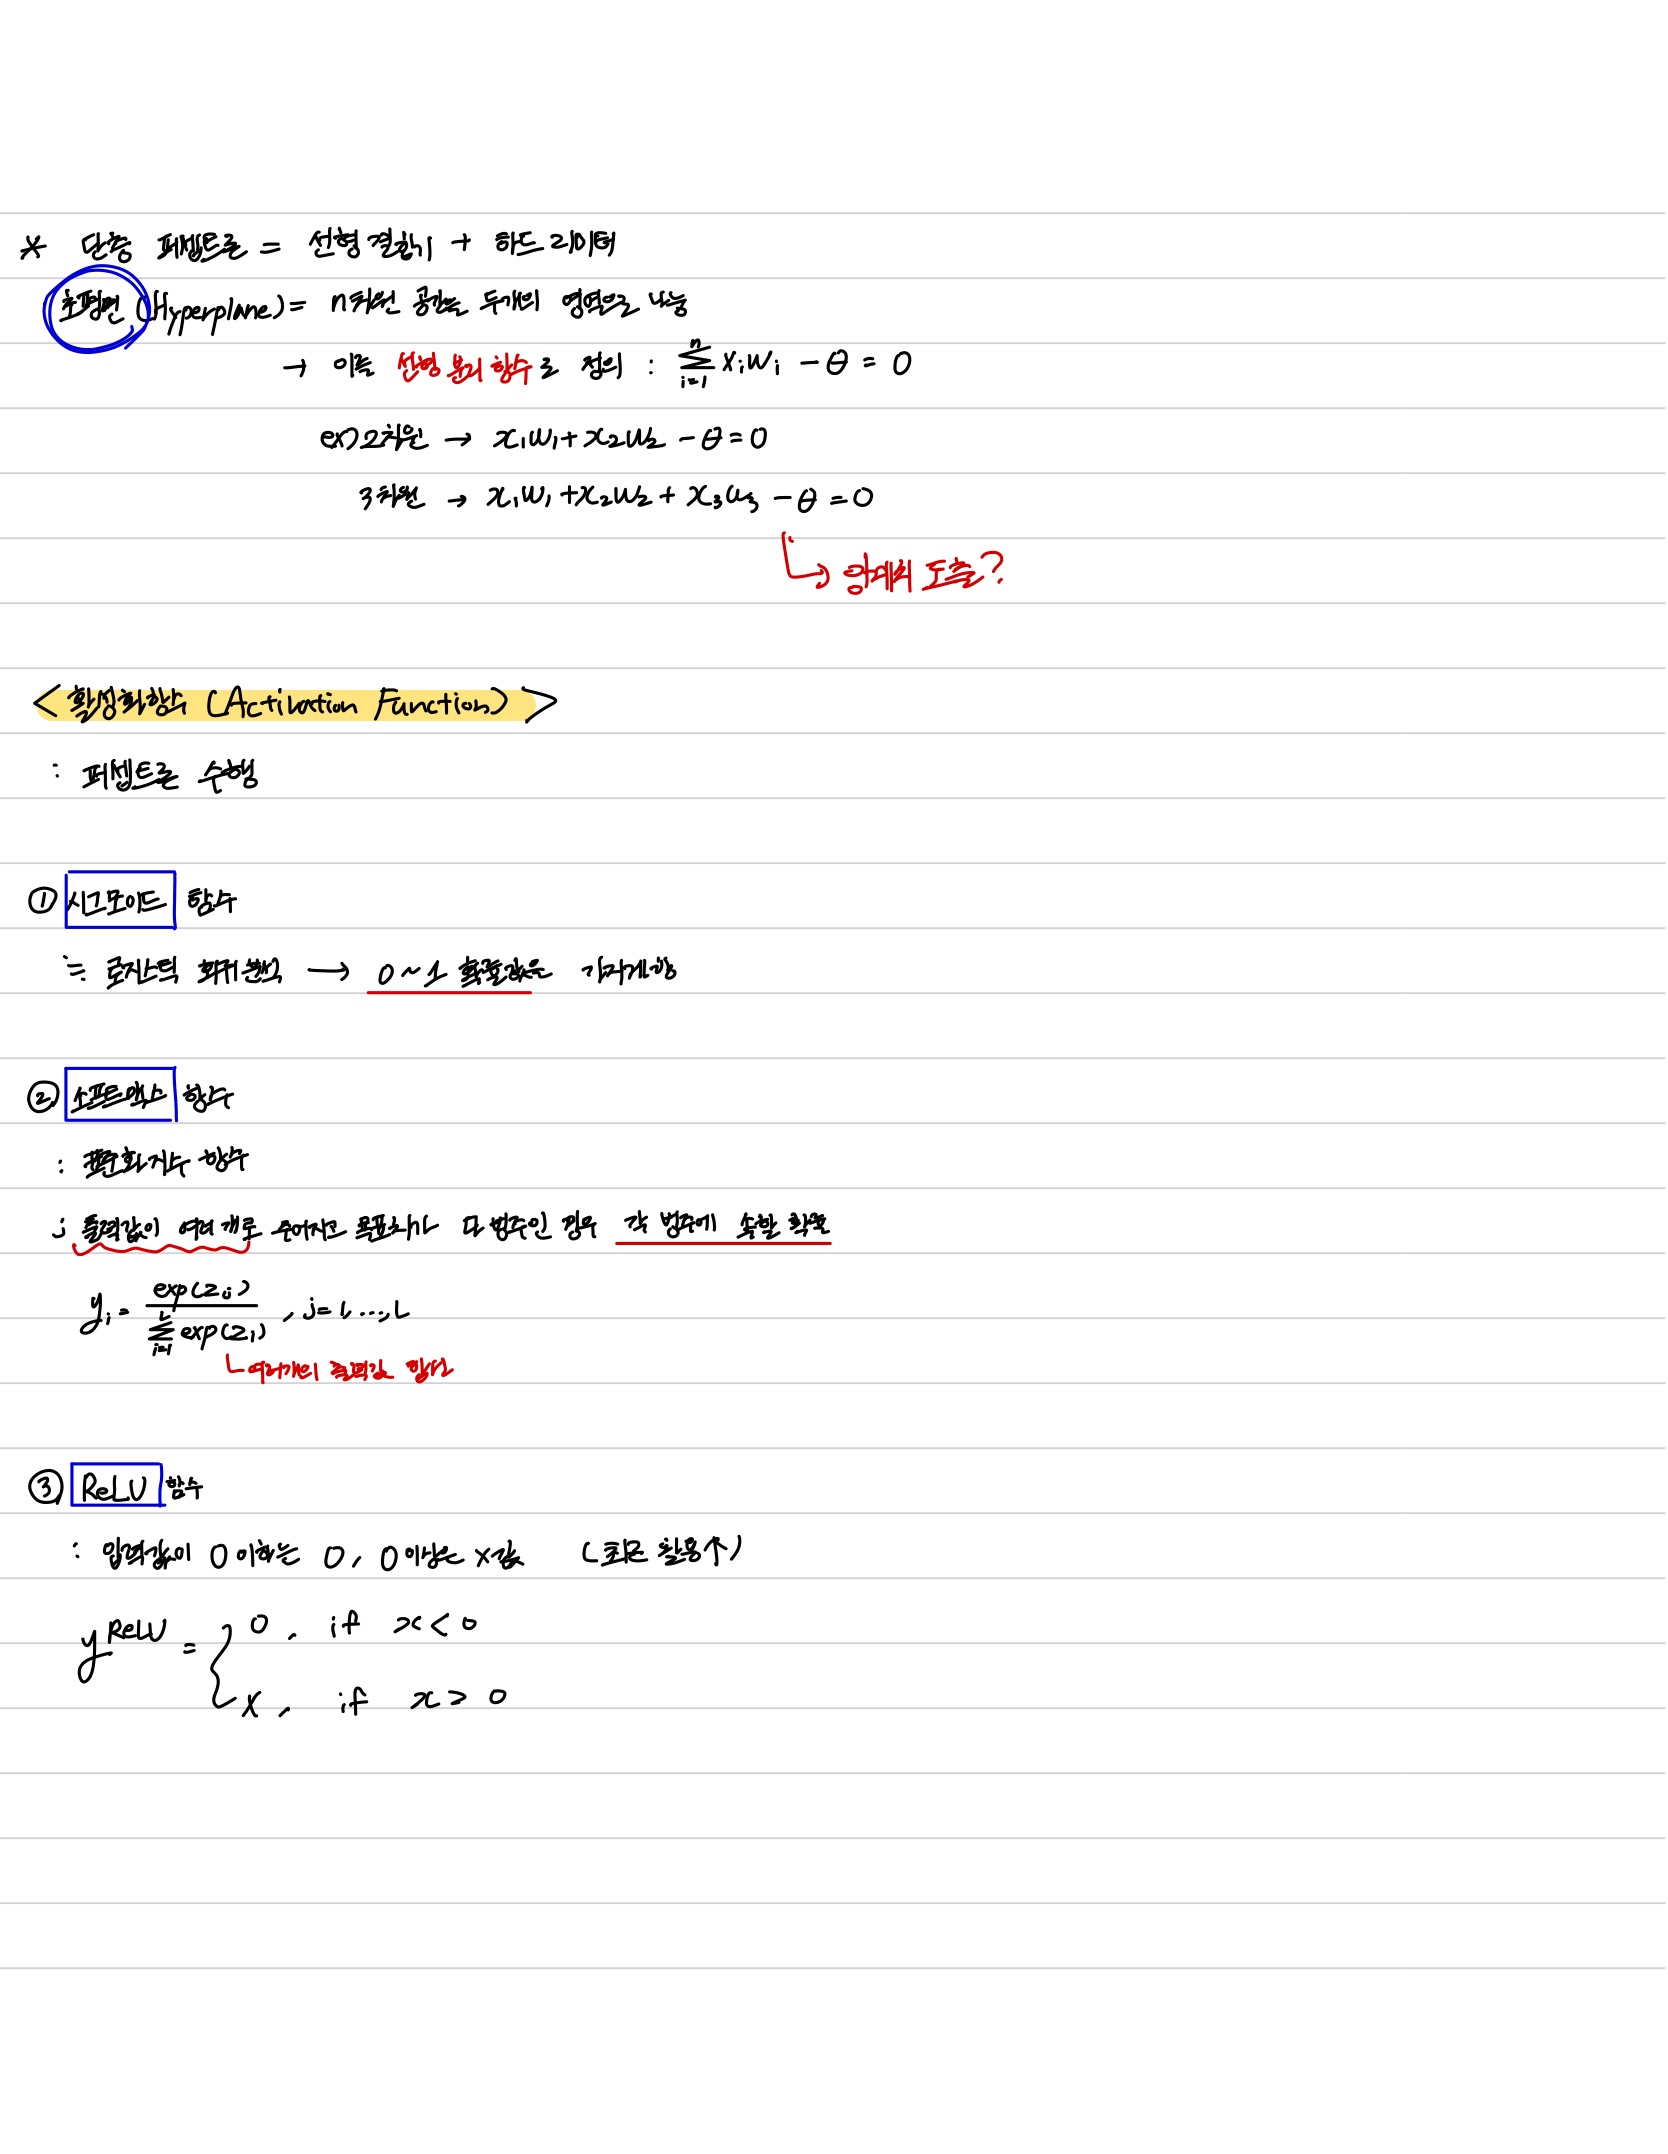 * 단층 퍼셉트론 = 선형 결합기 + 하드 리미터
초평면 (Hyperplane) = n차원 공간을 두개의 영역으로 나눔
→ 이를 선형 분리 함수로 정의 : $\sum_{i=1}^{n} x_i w_i - θ = 0$
ex) 2차원 → x₁w₁ + x₂w₂ - θ = 0
3차원 → x₁w₁ + x₂w₂ + x₃w₃ - θ = 0
↳ 도출?
< 활성화함수 (Activation Function) >
: 퍼셉트론 수행
① 시그모이드 함수
≒ 로지스틱 회귀분석 → 0 ~ 1 확률값을 가지게함
② 소프트맥스 함수
: 표준화지수 함수
; 출력값이 여러 개로 주어지고 목표치가 다범주인 경우 각 범주에 속할 확률
$y_i = \frac{exp(z_j)}{\sum_{i=1}^{L} exp(z_i)}$ , j = 1, ..., L
ㄴ 여러개의 출력값 합산
③ ReLU 함수
: 입력값이 0 이하는 0, 0 이상은 x값 (최근 활용↑)
$y^{ReLU}$ = { 0, if x < 0
x, if x > 0